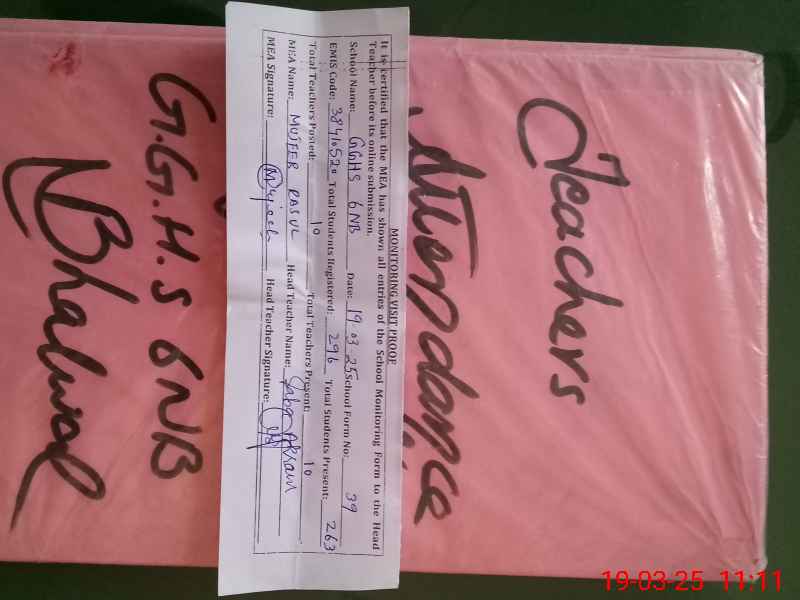 Teachers
Attendance
MONITORING VISIT PROOF
It is certified that the MEA has shown all entries of the School Monitoring Form to the Head
Teacher before its online submission.
School Name: GGHS 6NB Date: 19-03-25 School Form No: 39
EMIS Code: 38410520 Total Students Registered: 296 Total Students Present: 263
Total Teachers Posted: 10 Total Teachers Present: 10
MEA Name: MUJEEB RASUL Head Teacher Name: Akram
MEA Signature: Mujeeb Head Teacher Signature:
G.G.H.S 6NB
Bhalwal
19-03-25 11:11